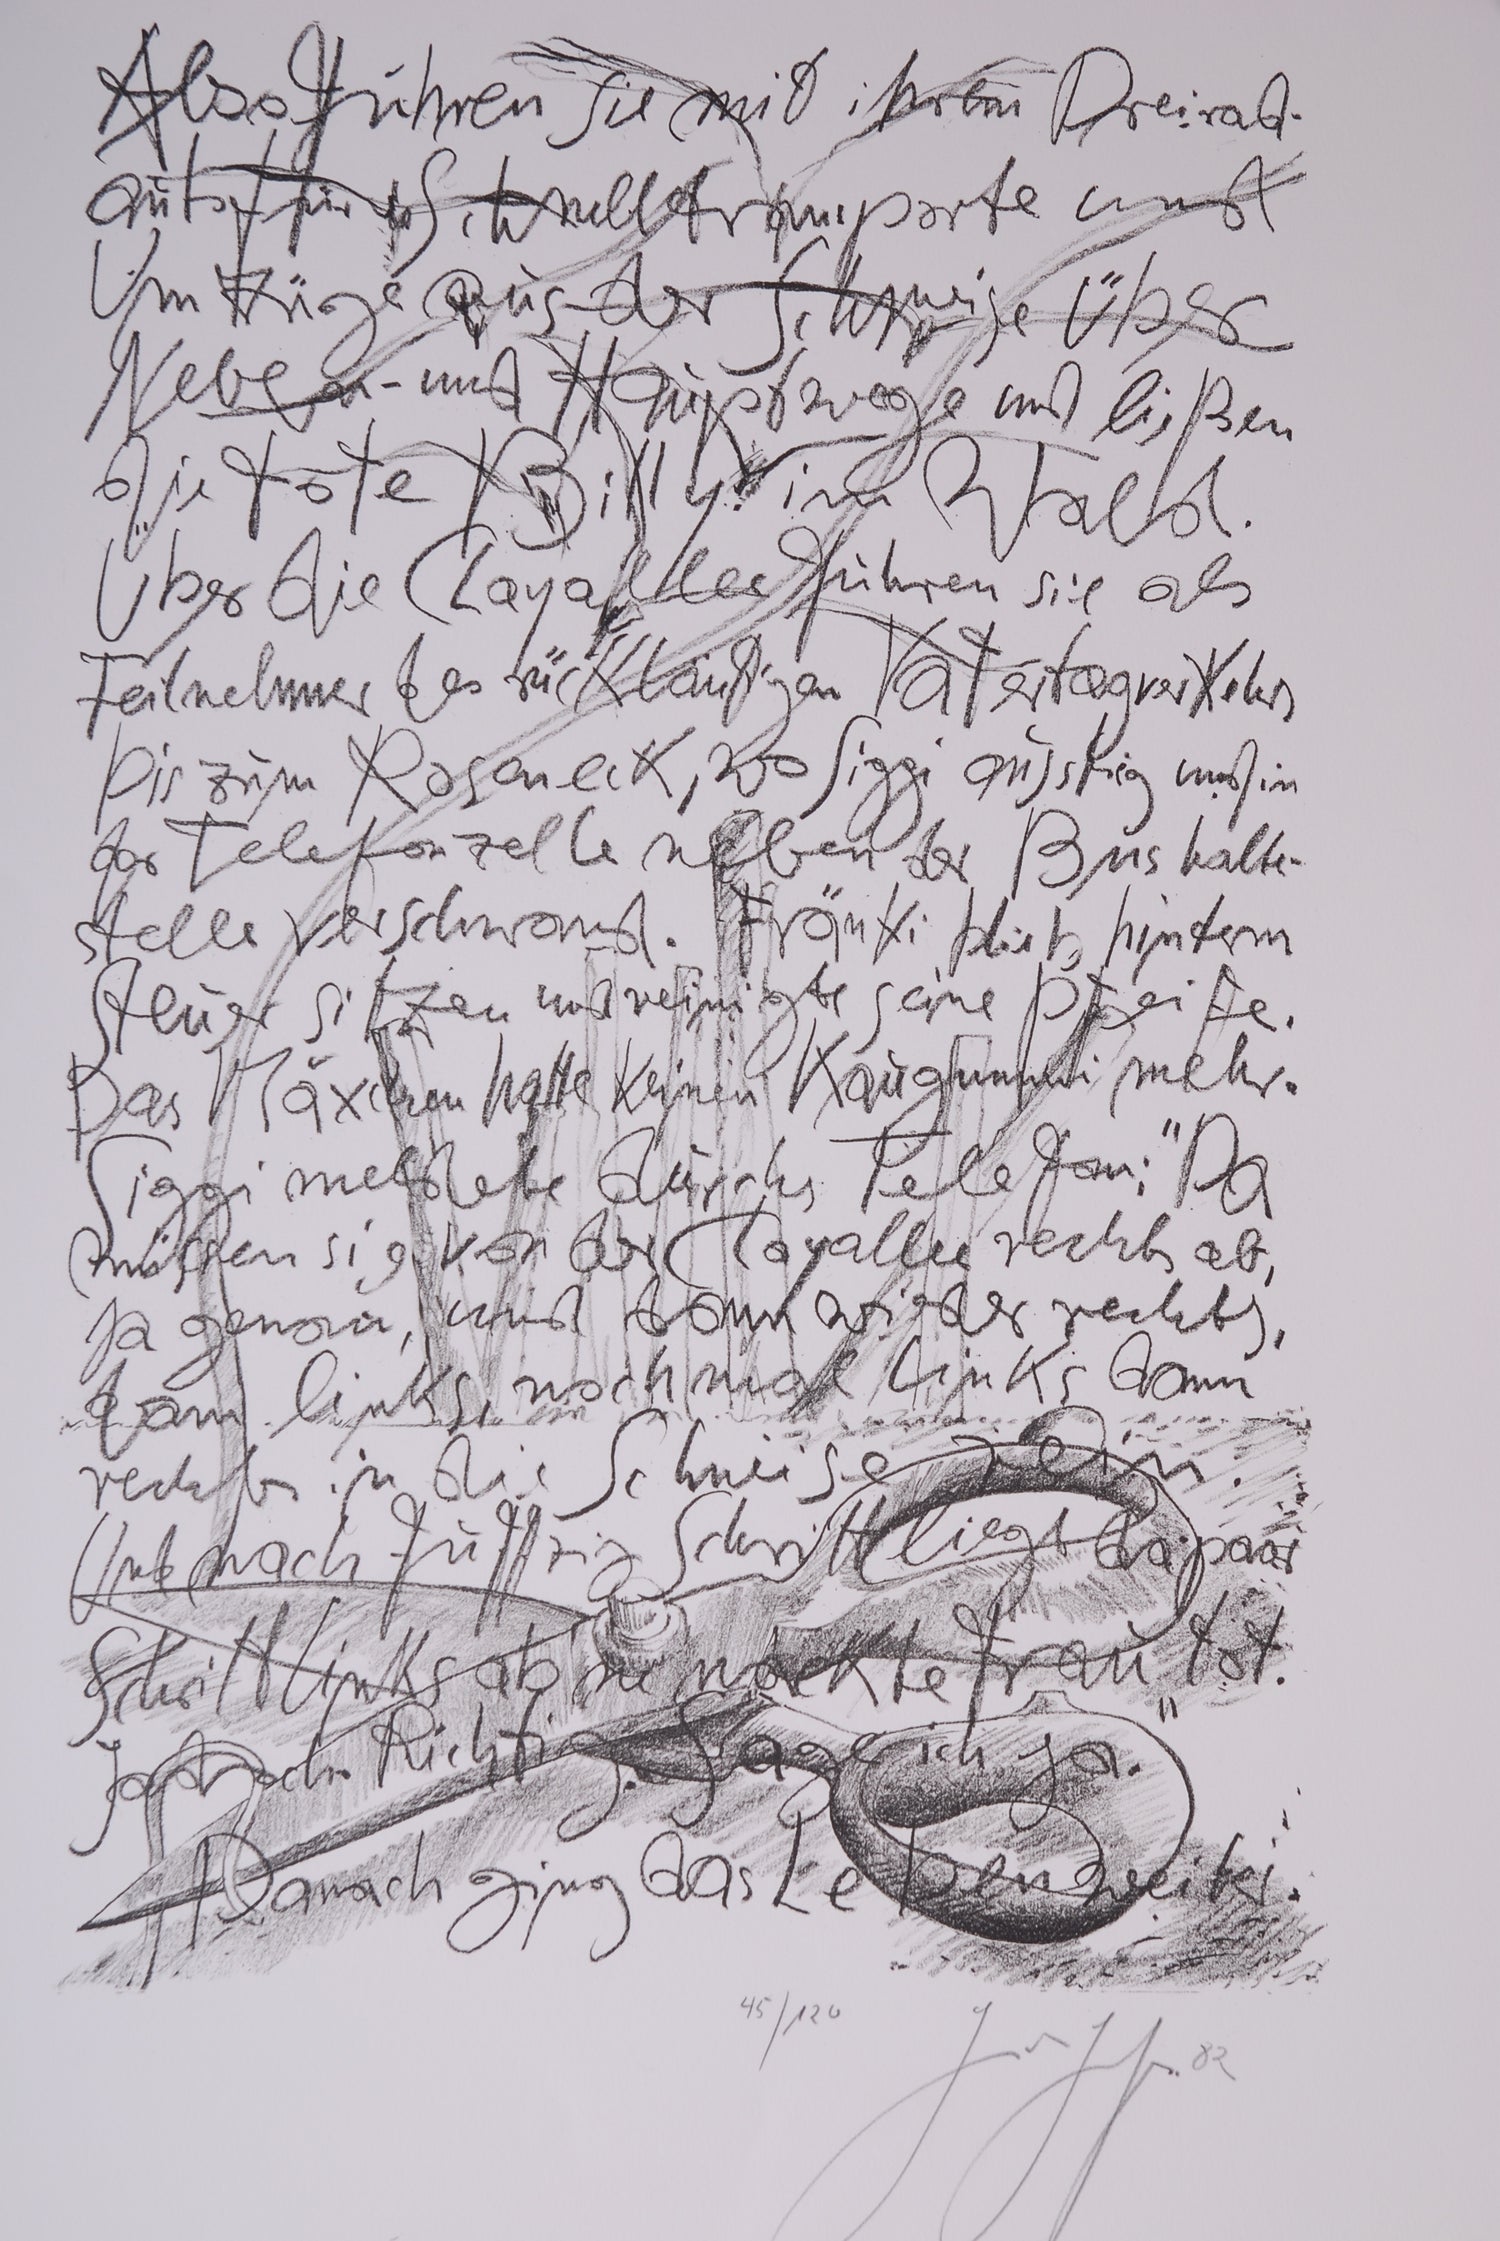 Also führen sie mit ihrem Dreirad-
auto für Schnelltransporte und
Umzüge aus der Schneise über
Neben- und Hauptwege und ließen
die tote Billy im Wald.
Über die Clayallee führen sie als
Teilnehmer des rückläufigen Vatertagverkehrs
bis zum Roseneck, wo Siggi ausstieg und in
der Telefonzelle neben der Bushalte-
stelle verschwand. Fränki blieb hinterm
Steuer sitzen und reinigte seine Pfeife.
Das Mäxchen hatte keinen Kaugummi mehr.
Siggi meldete durchs Telefon: "Da
müssen sie von der Clayallee rechts ab,
ja genau, und dann wieder rechts,
dann links, nochmal links dann
rechts in die Schneise rein.
Und nach fuffzig Schritt liegt da paar
Schritt links ab ne nackte Frau tot.
Ja doch. Richtig. Sage ich ja."
Danach ging das Leben weiter.
45/120
82